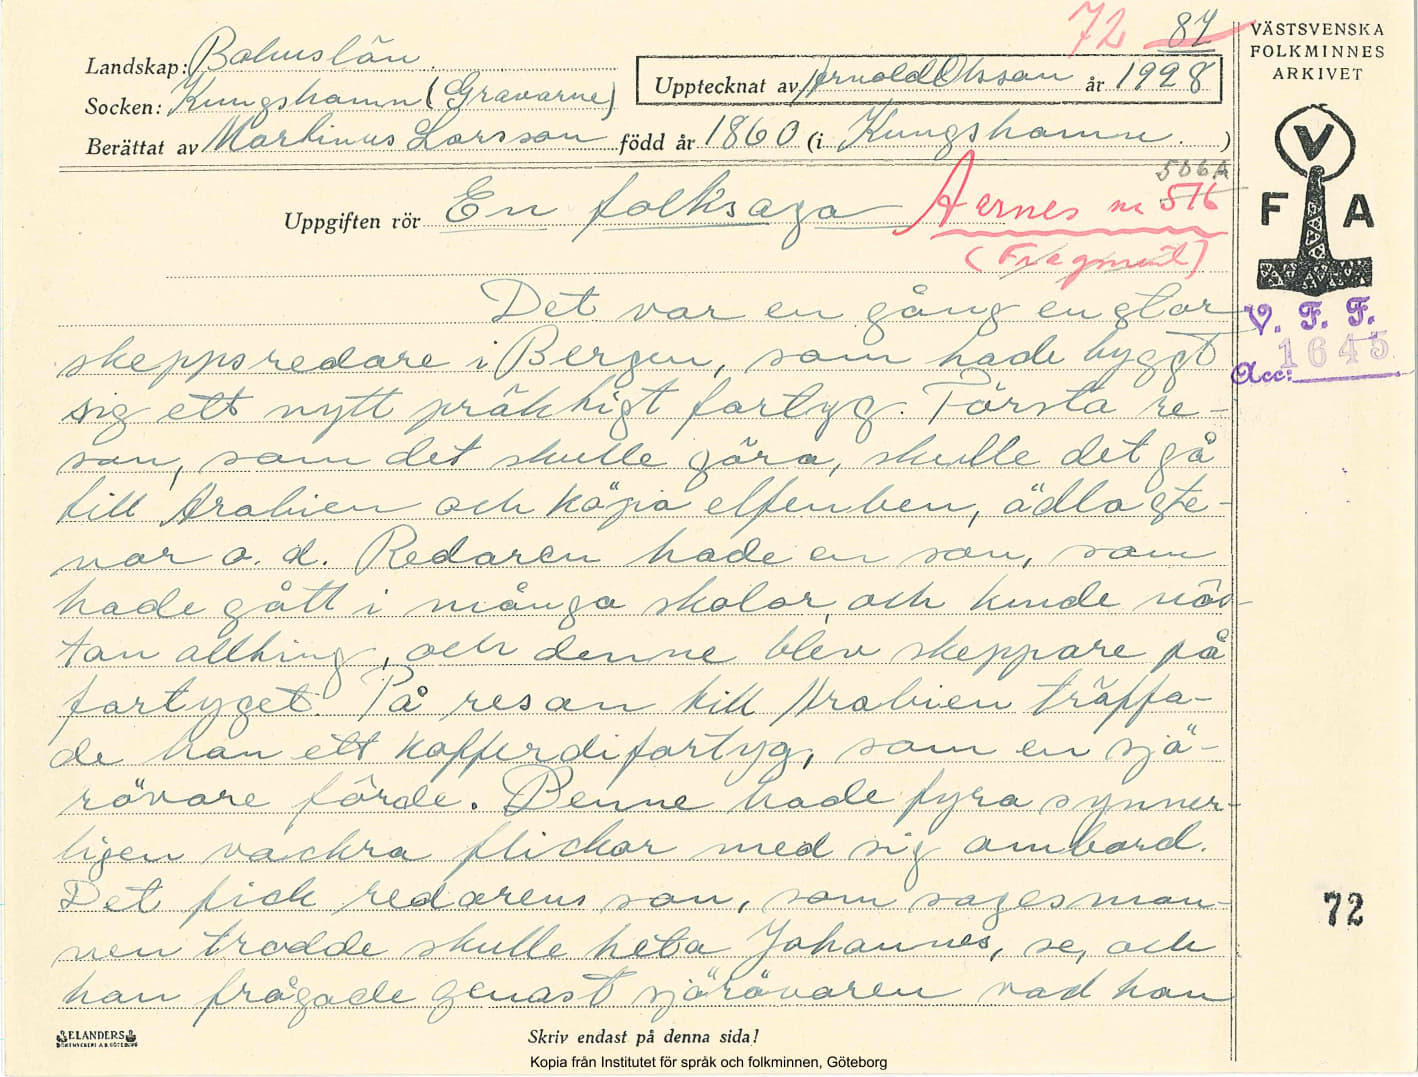 72 87
VÄSTSVENSKA
FOLKMINNES
ARKIVET
Landskap: Bohuslän
Upptecknat av Arnold Olsson år 1928
Socken: Kungshamn (Gravarne)
Berättat av Martinus Larsson född år 1860 (i Kungshamn.)
V
F A
506A
Uppgiften rör En folksaga Aernes nr 516
(Fragment)
V. F. F.
Acc: 1645
Det var en gång en stor
skeppsredare i Bergen, som hade byggt
sig ett nytt präktigt fartyg. Första re-
san, som det skulle göra, skulle det gå
till Arabien och köpa elfenben, ädla ste-
nar o. d. Redaren hade en son, som
hade gått i många skolor och kunde näs-
tan allting, och denne blev skeppare på
fartyget. På resan till Arabien träffa-
de han ett kofferdifartyg, som en sjö-
rövare förde. Denne hade fyra synner-
ligen vackra flickor med sig ombord.
Det fick redarens son, som sagesman-
nen trodde skulle heta Johannes, se, och
han frågade genast sjörövaren vad han
72
ELANDERS
BOKTRYCKERI A.B. GÖTEBORG
Skriv endast på denna sida!
Kopia från Institutet för språk och folkminnen, Göteborg